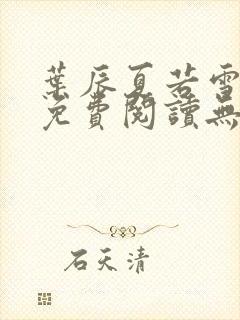 葉辰夏若雪
免費閱讀無
石天清